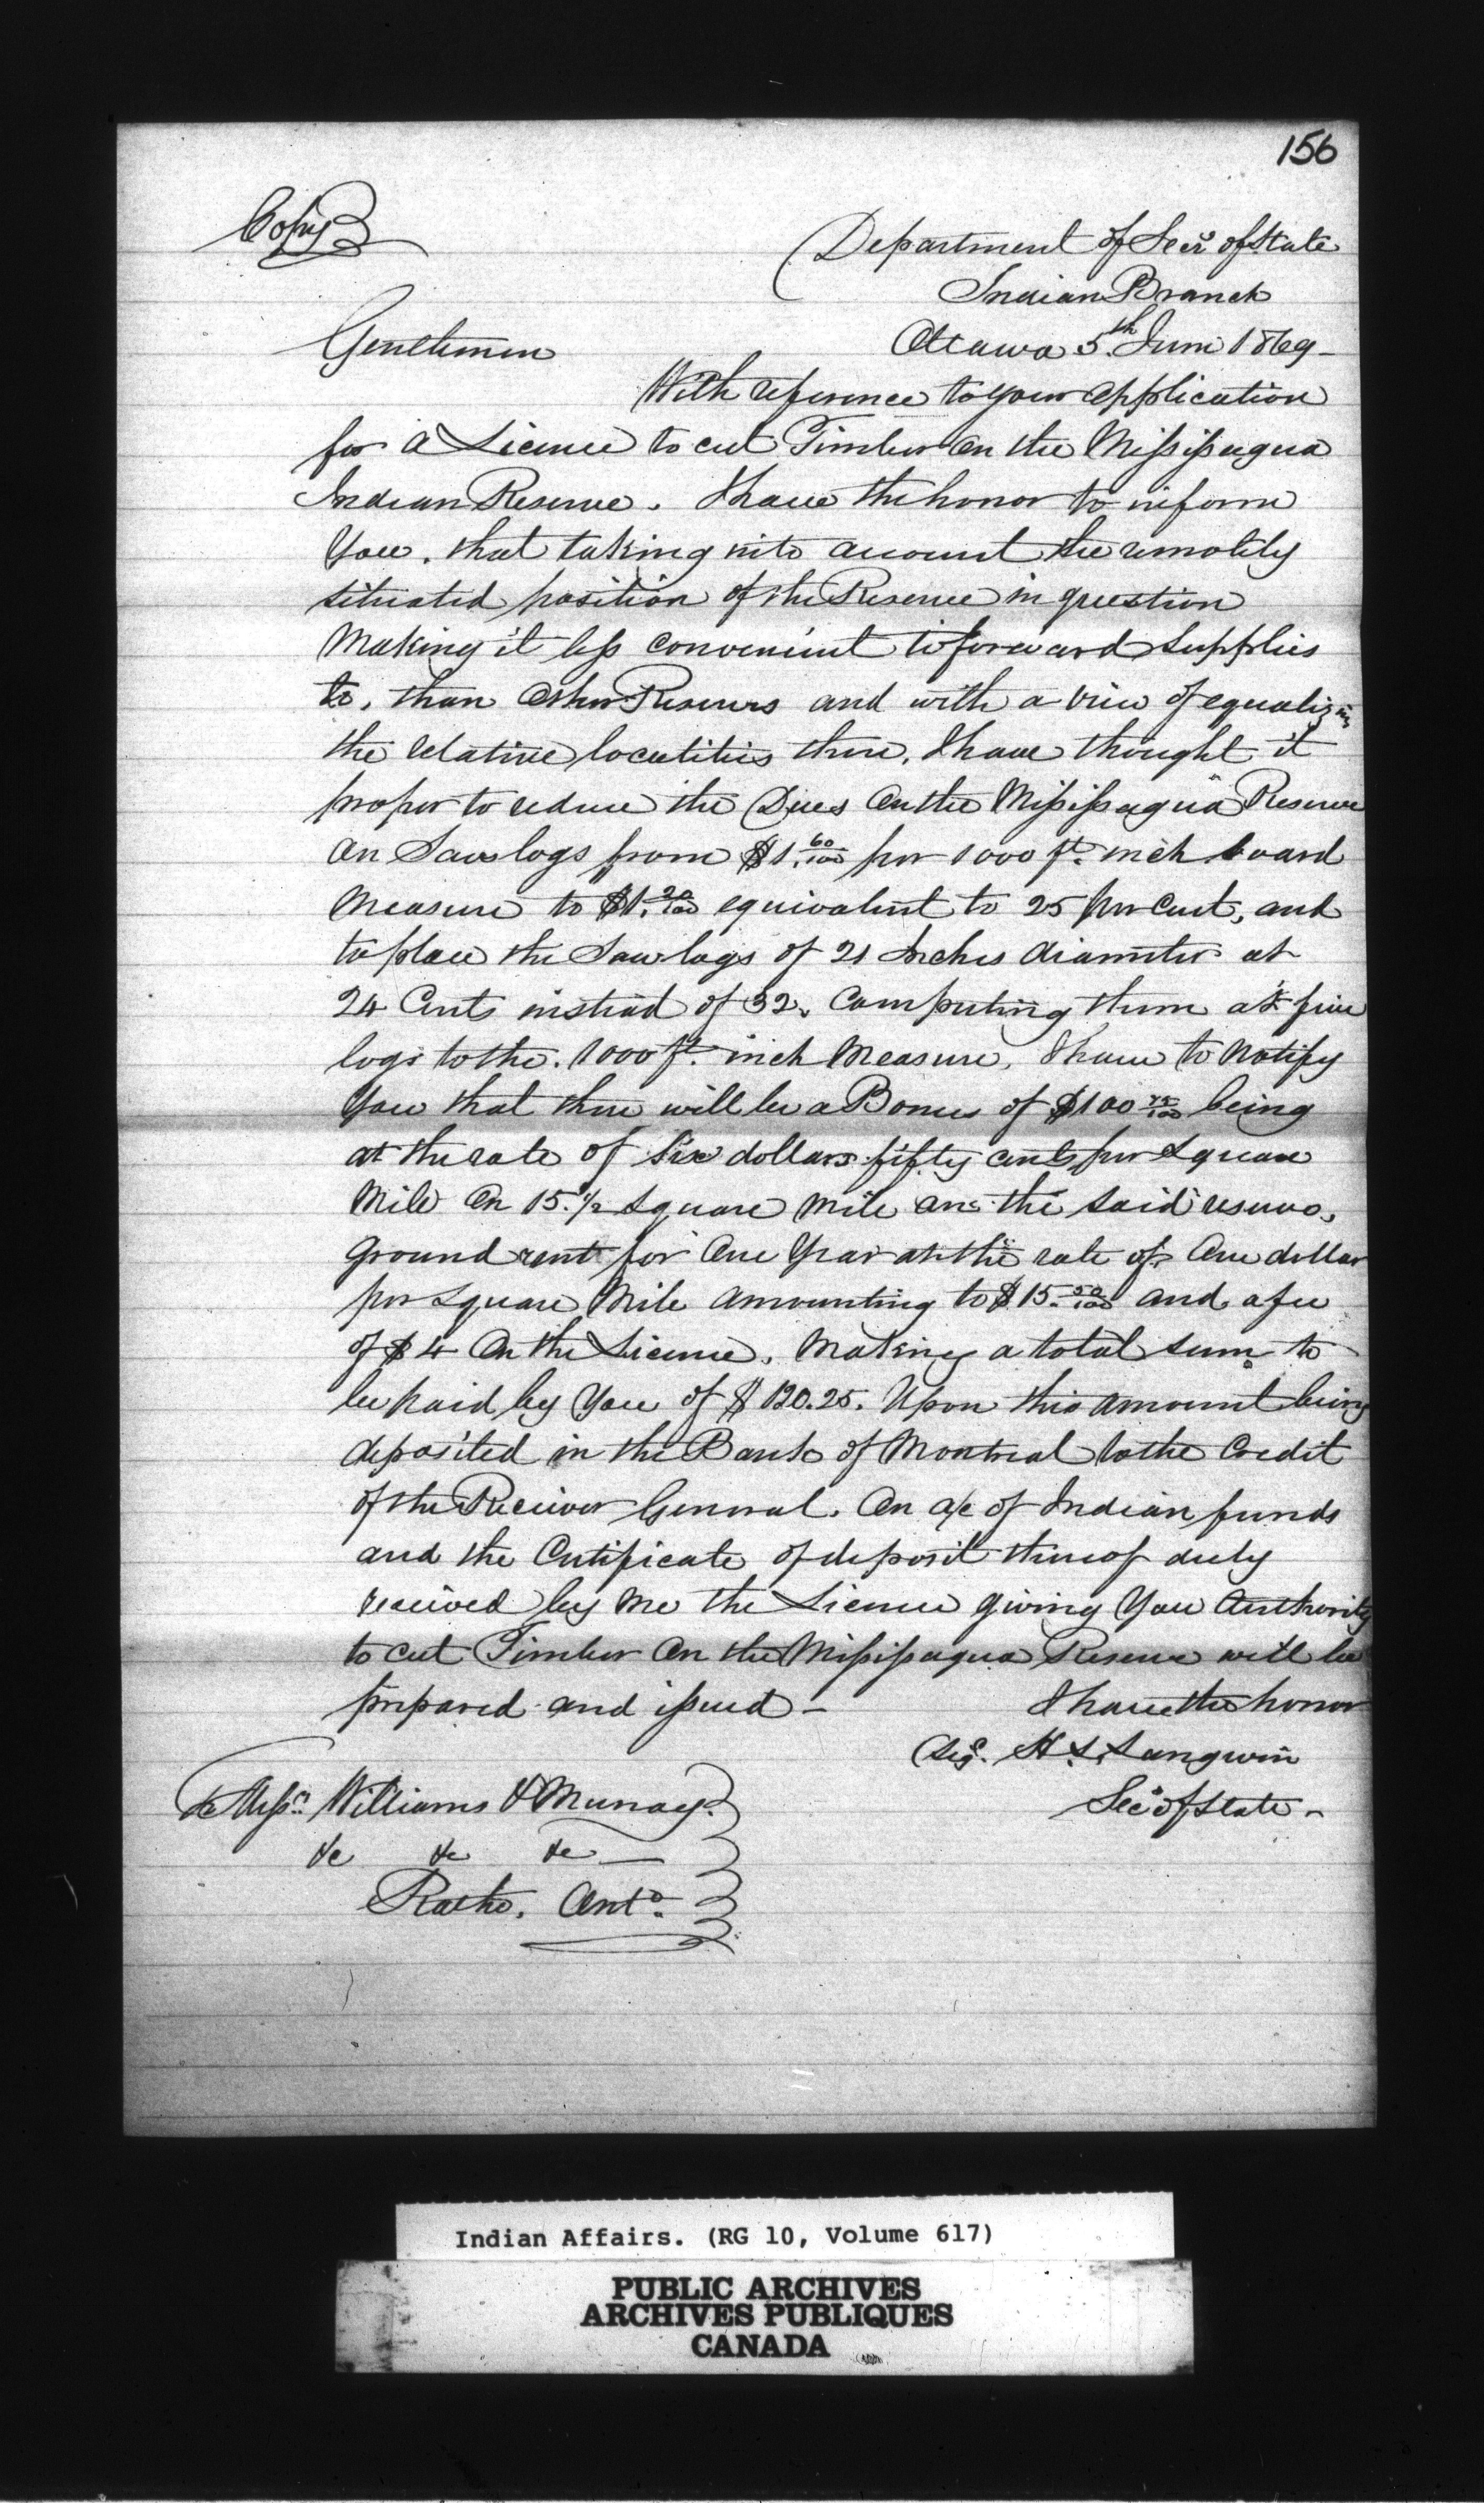 156
Copy
Department of Secy of State
Indian Branch
Ottawa 5th June 1869-
Gentlemen
With reference to your application
for a Licence to cut Timber on the Missisagua
Indian Reserve. I have the honor to inform
You, that taking into account the remotely
situated position of the Reserve in question
Making it less convenient to forward supplies
to, than other Reserves and with a view of equalizing
the relative localities there, I have thought it
proper to reduce the Dues on the Missisagua Reserve
on Saw logs from $1.60/100 per 1000 ft. inch board
Measure to $1.20/100 equivalent to 25 per Cent, and
to place the Saw logs of 21 Inches diameter at
24 Cents instead of 32. Computing them at five
logs to the 1000 ft. inch Measure, I have to Notify
You that there will be a Bonus of $100 75/100 being
at the rate of six dollars fifty cents per Square
Mile on 15.1/2 Square Mile on the said reserve,
Ground rent for One Year at the rate of One dollar
per Square Mile amounting to $15.50/100 and a fee
of $4 On the Licence, Making a total sum to
be paid by You of $120.25. Upon this amount being
deposited in the Bank of Montreal to the Credit
of the Receiver General. On a/c of Indian funds
and the Certificate of deposit thereof duly
received by Me the Licence giving You Authority
to cut Timber on the Missisagua Reserve will be
prepared and issued -
I have the honor
Sig. H. L. Langevin
Secy of State -
To Messrs Williams & Murray.
&c &c &c —
Onto.
Indian Affairs. (RG 10, Volume 617)
PUBLIC ARCHIVES
ARCHIVES PUBLIQUES
CANADA